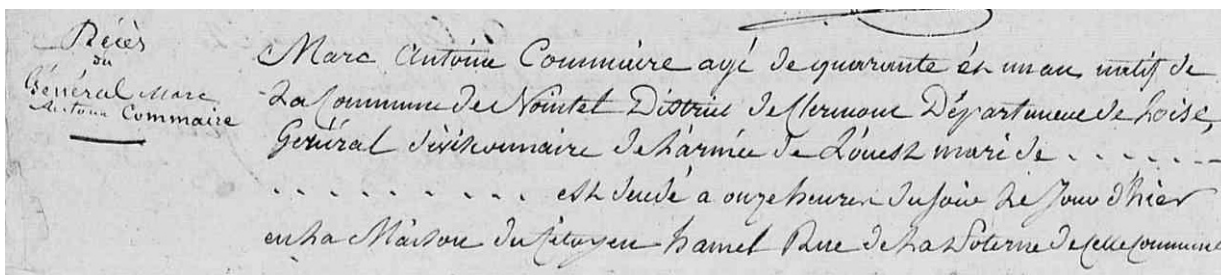 Décès
du
Général Marc
Antoine Commaire
Marc Antoine Commaire agé de quarante et un an natif de
La Commune de Nointel District de Clermont Département de Loise,
Général divisionnaire de L'armée de L'ouest mari de . . . . . . .
. . . . . . . . . . est decedé a onze heures du soir Le Jour d'hier
en La Maison du Citoyen hamel Rue de La Poterne de Cette Commune